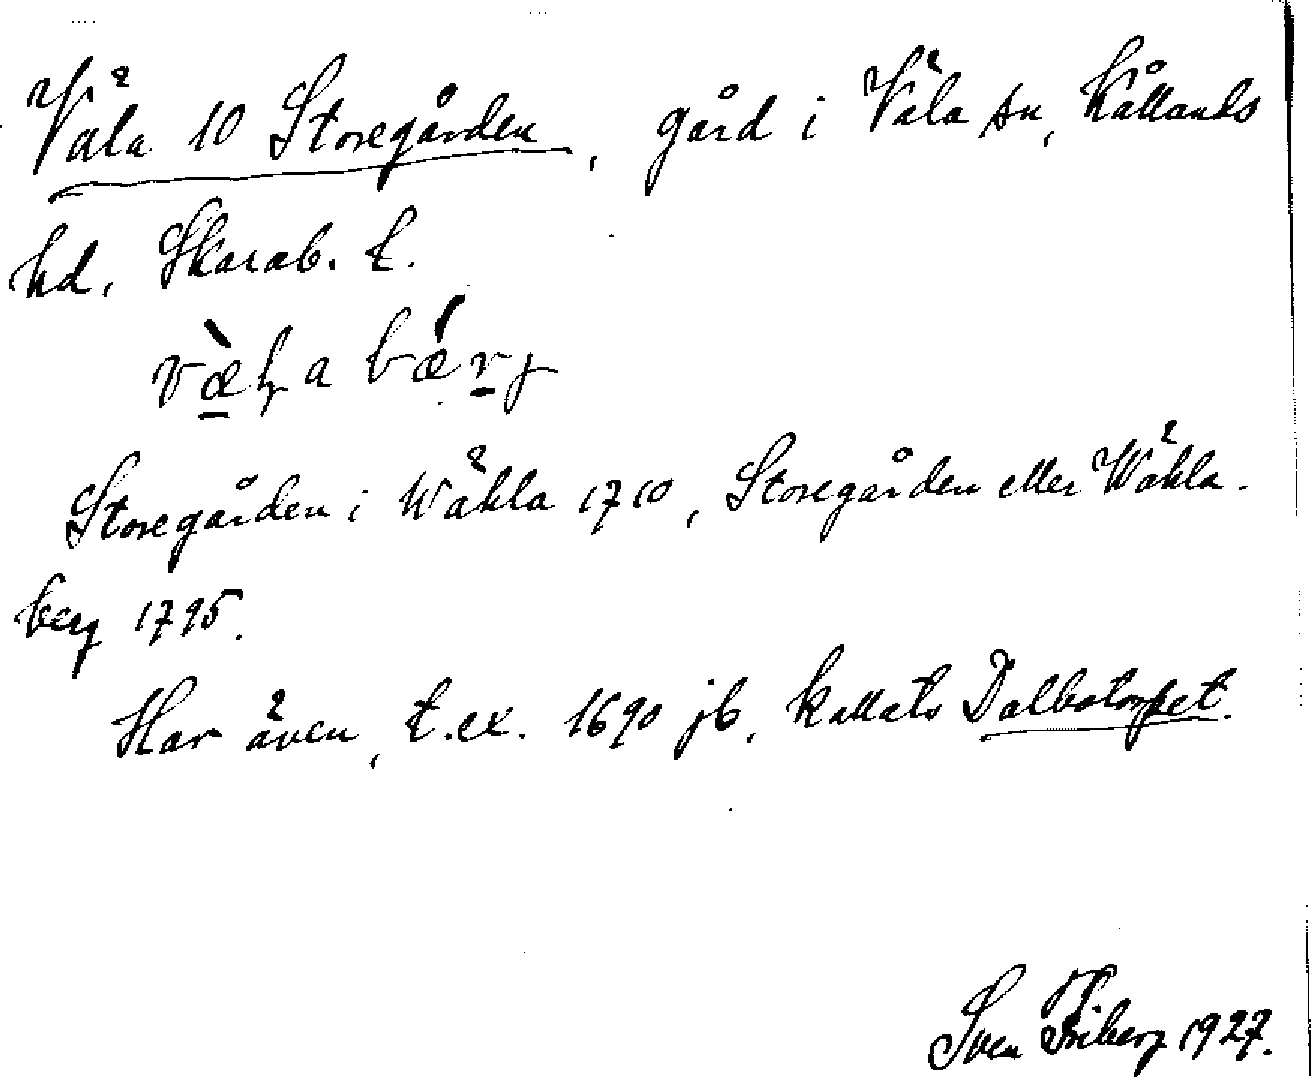 Väla 10 Storegården, gård i Väla sn, Kållands
hd, Skarab. l.
væ̀ḷa bǽrj
Storegården i Wähla 1710, Storegården eller Wähla-
berg 1795.
Har även, t.ex. 1690 jb, kallats Dalbotorpet.
Sven Friberg 1927.